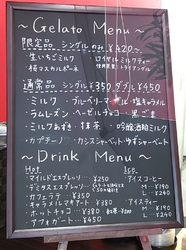 ～Gelato Menu～
限定品 シングルのみ ¥420～
・生いちごミルク ・ロイヤルミルクティー
・桜マスカルポーネ
通常品 シングル¥350 ダブル¥450
・ミルク ・ブルーベリーマーブル ・塩キャラメル
・ラムレーズン ・ヘーゼルチョコ ・黒ごま
・ミルクあずき ・抹茶 ・吟醸酒粕ミルク
・カプチーノ ・カシスシャーベット ・ゆずシャーベット
～Drink Menu～
Hot Ice
・マイルドエスプレッソ …¥250 ・アイスコーヒー
・デミタスエスプレッソ …¥250 M…¥190
・カプチーノ …¥350 L…¥240
・キャラメルマキアート …¥380 ・アイスティー
・ホットチョコ …¥380 M…¥190
・アフォガート …¥450 L…¥240